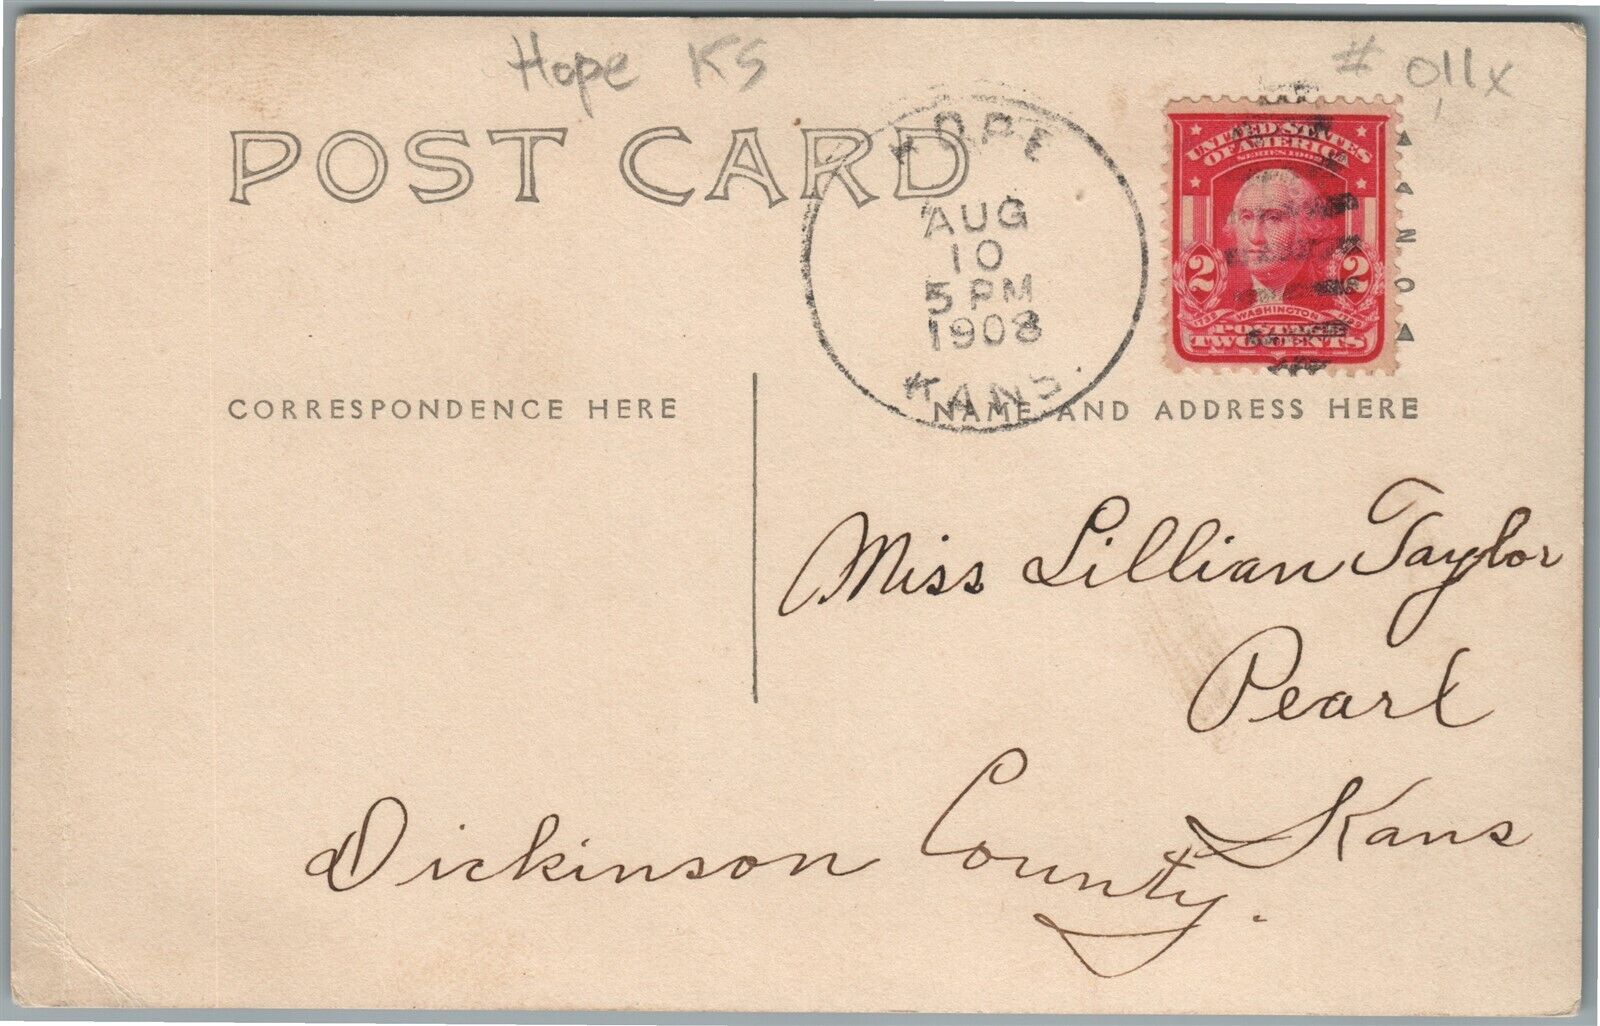 Hope KS
# 011x
POST CARD
HOPE
AUG
10
5 PM
1908
KANS.
UNITED STATES
OF AMERICA
SERIES 1902
2 2
1732 WASHINGTON 1799
POSTAGE
TWO CENTS
CORRESPONDENCE HERE
NAME AND ADDRESS HERE
Miss Lillian Taylor
Pearl
Kans
Dickinson County.